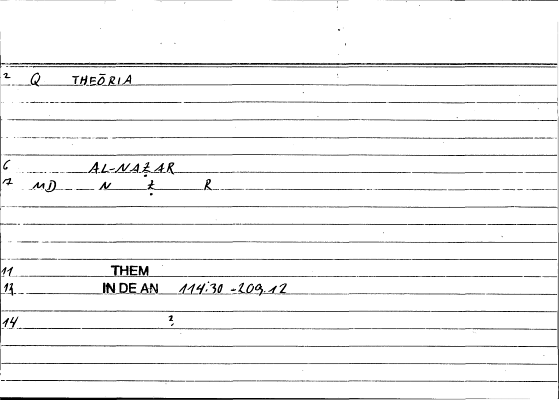 2 Q THEŌRIA
6 AL-NAẒAR
7 MD N Ẓ R
11 THEM
13 IN DE AN 114:30 - 209.12
14 2